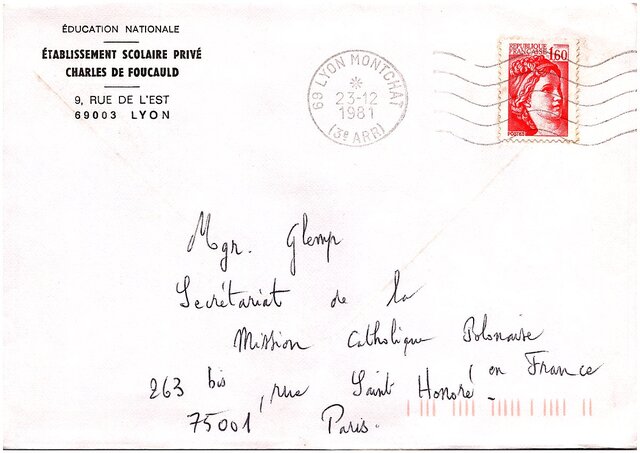 ÉDUCATION NATIONALE
ÉTABLISSEMENT SCOLAIRE PRIVÉ
CHARLES DE FOUCAULD
9, RUE DE L'EST
69003 LYON
69 LYON MONTCHAT
23-12
1981
(3e ARR)
REPUBLIQUE
FRANÇAISE 1,60
POSTES
Mgr. Glemp
Secrétariat de la
Mission Catholique Polonaise
en France
263 bis, rue Saint Honoré.
75001 Paris.